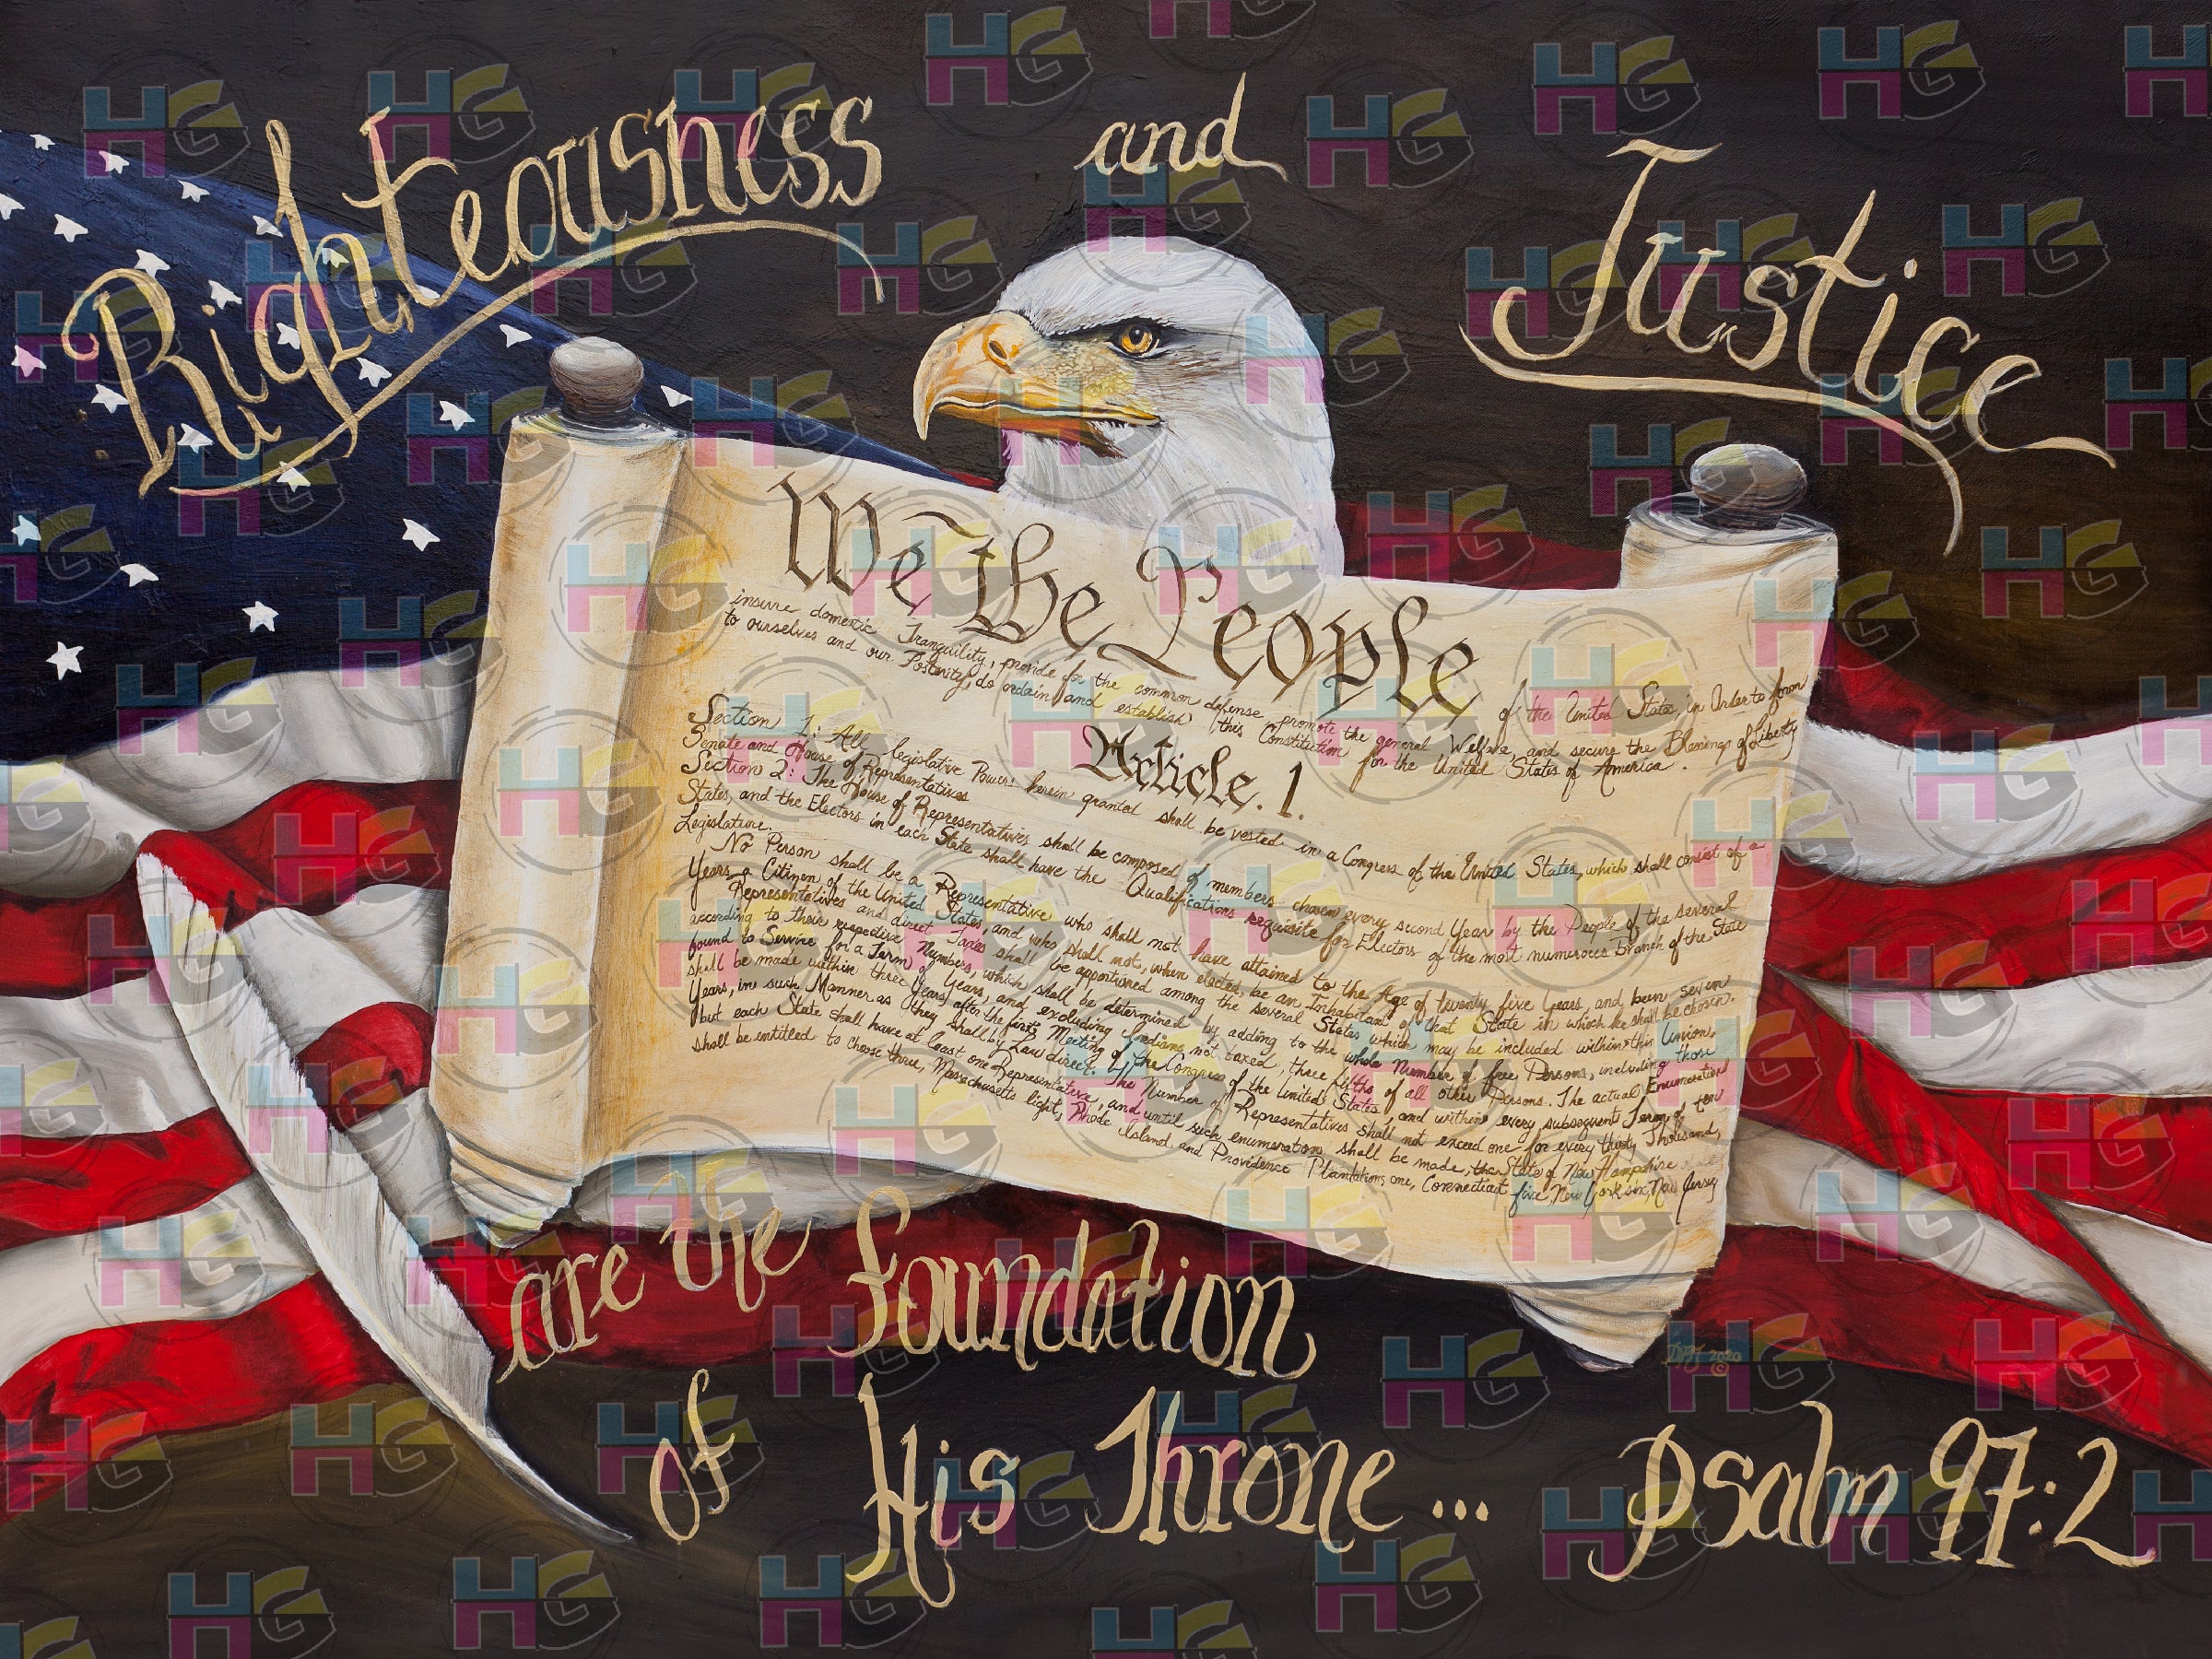 Righteousness and Justice
We the People of the United States, in Order to form
insure domestic Tranquility, provide for the common defense, promote the general Welfare, and secure the Blessings of Liberty
to ourselves and our Posterity, do ordain and establish this Constitution for the United States of America.
Article. 1.
Section 1: All legislative Powers herein granted shall be vested in a Congress of the United States, which shall consist of a
Senate and House of Representatives
Section 2: The House of Representatives shall be composed of members chosen every second Year by the People of the several
States, and the Electors in each State shall have the Qualifications requisite for Electors of the most numerous Branch of the State
Legislature.
No Person shall be a Representative who shall not have attained to the Age of twenty five Years, and been seven
Years a Citizen of the United States, and who shall not, when elected, be an Inhabitant of that State in which he shall be chosen.
Representatives and direct Taxes shall be apportioned among the several States which may be included within this Union,
according to their respective Numbers, which shall be determined by adding to the whole Number of free Persons, including those
bound to Service for a Term of Years, and excluding Indians not taxed, three fifths of all other Persons. The actual Enumeration
shall be made within three Years after the first Meeting of the Congress of the United States, and within every subsequent Term of ten
Years, in such Manner as they shall by Law direct. The Number of Representatives shall not exceed one for every thirty Thousand,
but each State shall have at least one Representative, and until such enumeration shall be made, the State of New Hampshire
shall be entitled to choose three, Massachusetts eight, Rhode Island and Providence Plantations one, Connecticut five, New York six, New Jersey
DPJ 2020
©
are the foundation
of His Throne... Psalm 97:2
HG